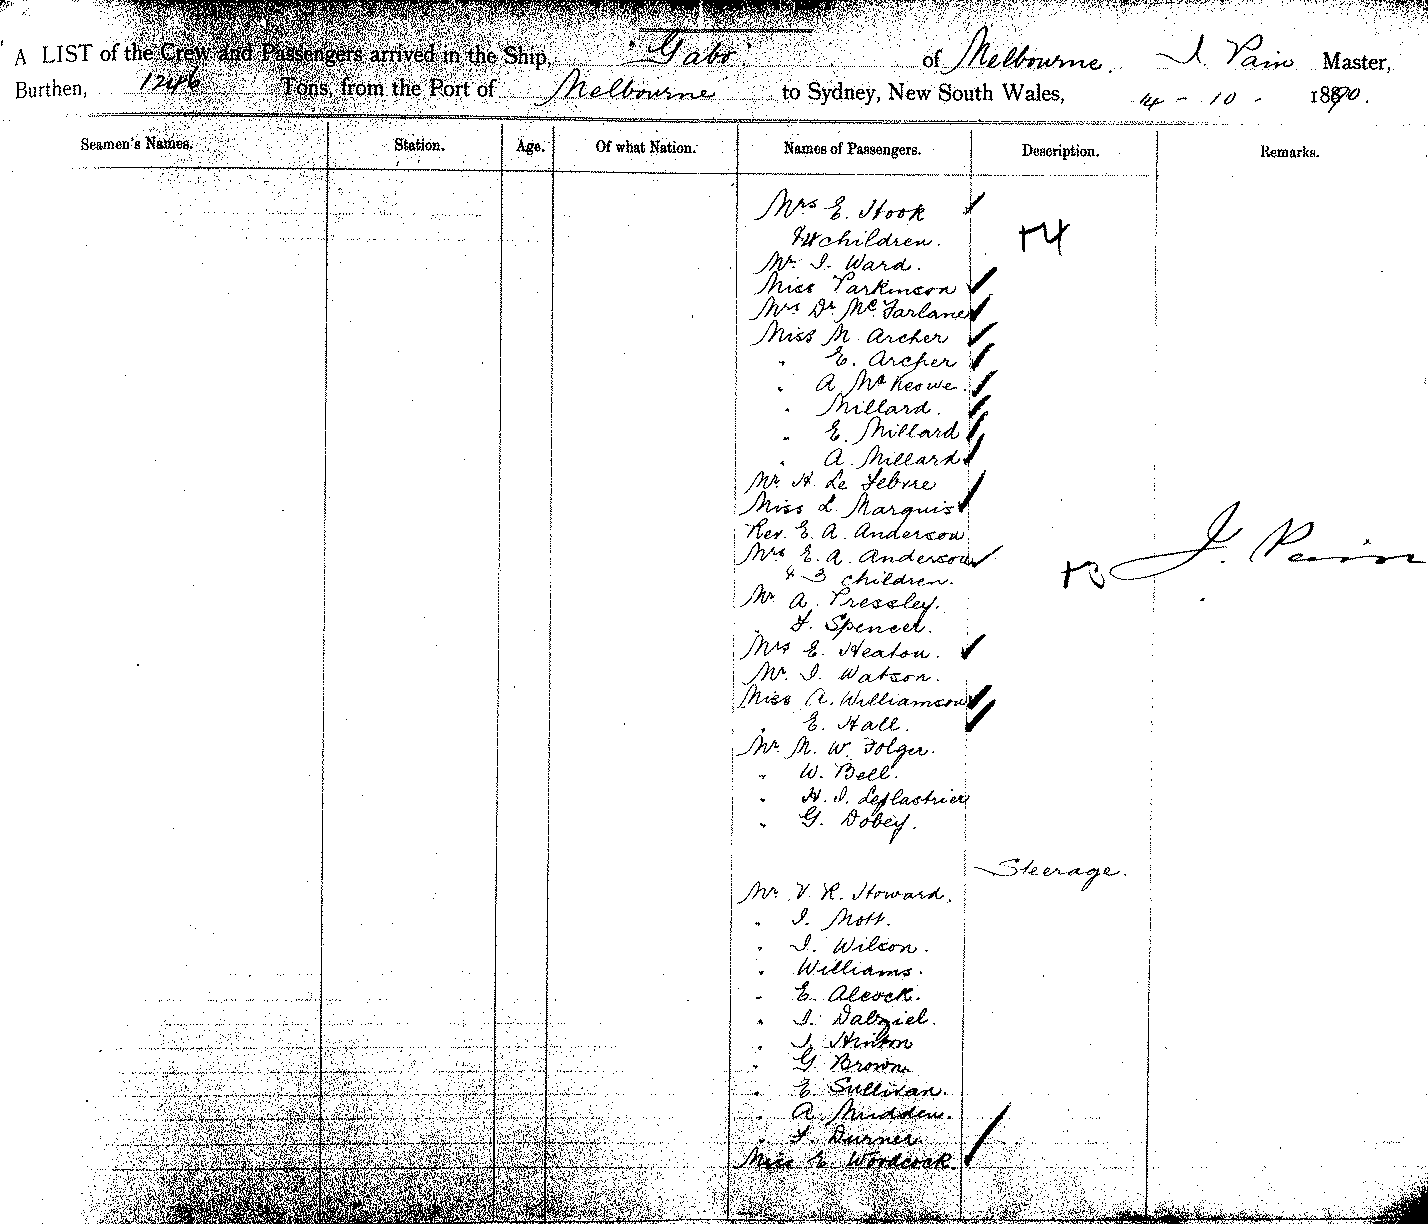 A LIST of the Crew and Passengers arrived in the Ship, "Gabo" of Melbourne. J. Pain Master,
Burthen, 1246 Tons, from the Port of Melbourne to Sydney, New South Wales, 4 - 10 - 1890.
Seamen's Names. Station. Age. Of what Nation. Names of Passengers. Description. Remarks.
Mrs E. Hook
& 4 children. +4
Mr. J. Ward.
Miss Parkinson
Mrs Dr McFarlane
Miss M. Archer
" E. Archer
" A McKeowe.
" Millard.
" E. Millard
" A. Millard
Mr. H. Le Febvre
Miss L. Marquis
Rev. E. A. Anderson
Mrs E. A. Anderson
& 3 children. +3 J. Pain
Mr A. Pressley.
" F. Spencer.
Mrs E. Heaton.
Mr. J. Watson.
Miss A. Williamson
" E. Hall.
Mr. M. W. Folger.
" W. Bell.
" H. J. Leplastrier
" G. Dobey.
Steerage.
Mr. V. R. Howard.
" J. Mott.
" J. Wilson.
" Williams.
" E. Alcock.
" J. Dalziel.
" J. Hinton
" G. Brown
" E. Sullivan.
" A. Mudden.
" F. Durner
Miss E. Woodcock